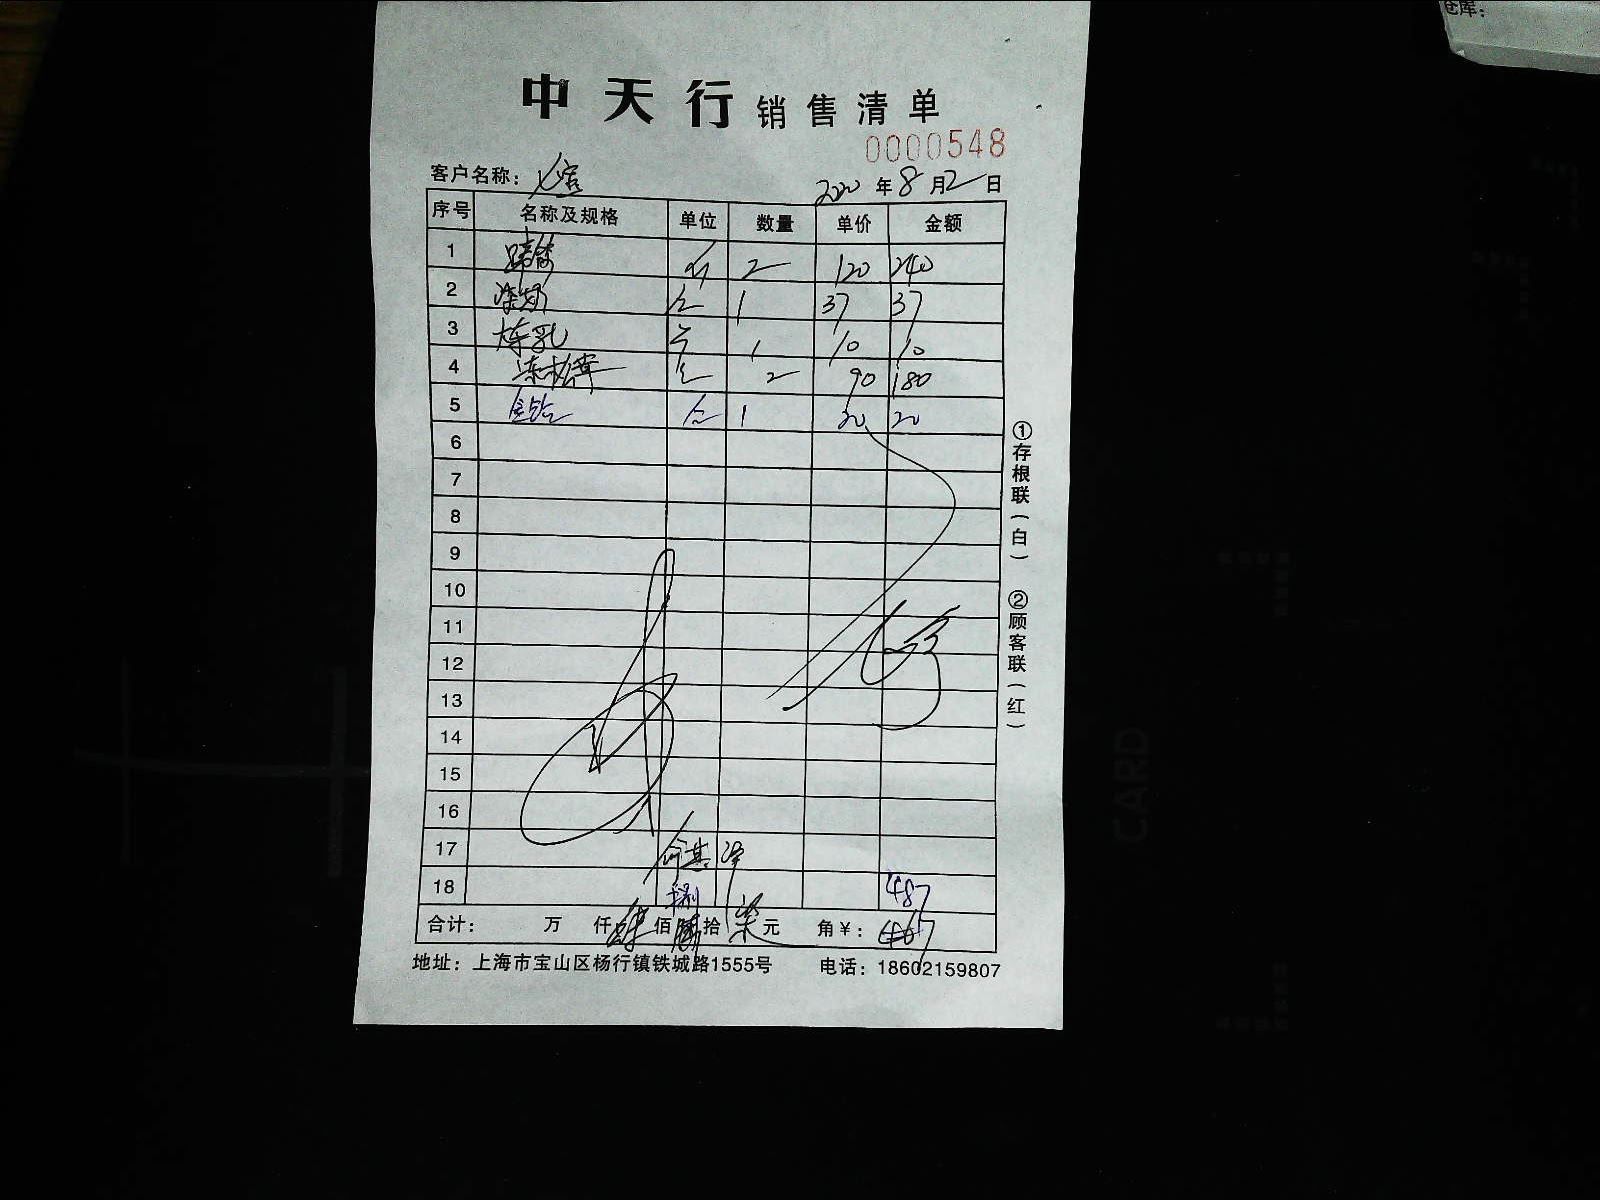 仓库：
中天行销售清单
0000548
客户名称：
2020年8月2日
序号 名称及规格 单位 数量 单价 金额
1 蹄筋 2 120 240
2 1 37 37
3 炼乳 1 10 10
4 冻松茸 2 90 180
5 1 20 20
6
7
8
9
10
11
12
13
14
15
16
17
18 捌 487
合计： 万 仟 肆佰 拾 柒元 角¥： 467
地址：上海市宝山区杨行镇铁城路1555号 电话：18602159807
①存根联（白） ②顾客联（红）
CARD